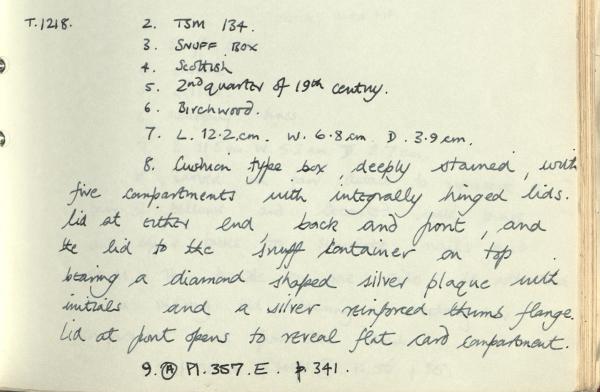 T.1218. 2. TSM 134.
3. SNUFF BOX
4. Scottish
5. 2nd quarter of 19th century.
6. Birchwood.
7. L. 12.2.cm. W. 6.8cm D. 3.9cm.
8. Cushion type box, deeply stained, with
five compartments with integrally hinged lids.
Lid at either end, back and front, and
the lid to the snuff container on top
bearing a diamond shaped silver plaque with
initials and a silver reinforced thumb flange.
Lid at front opens to reveal flat card compartment.
9. (A) Pl. 357. E. p 341.